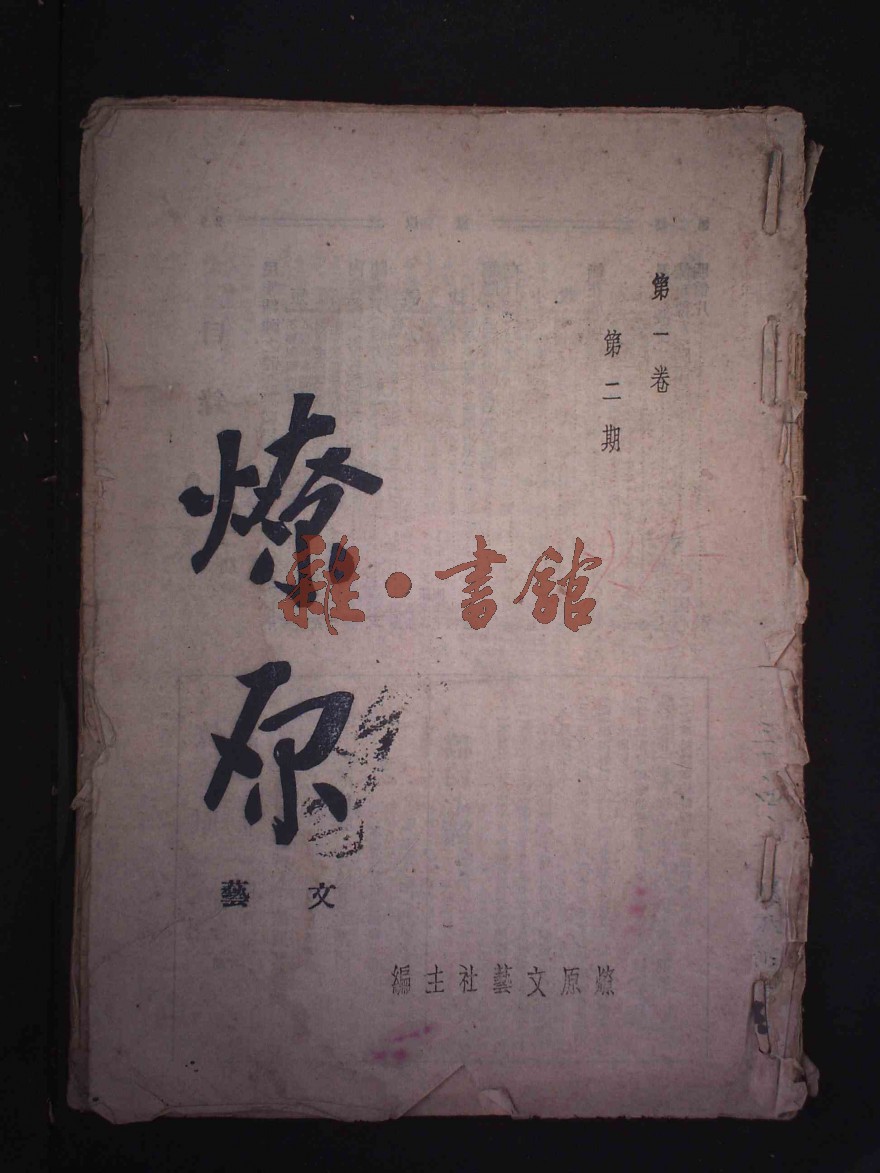 第一卷
第二期
燎原
文藝
燎原文藝社主編
雜·書館